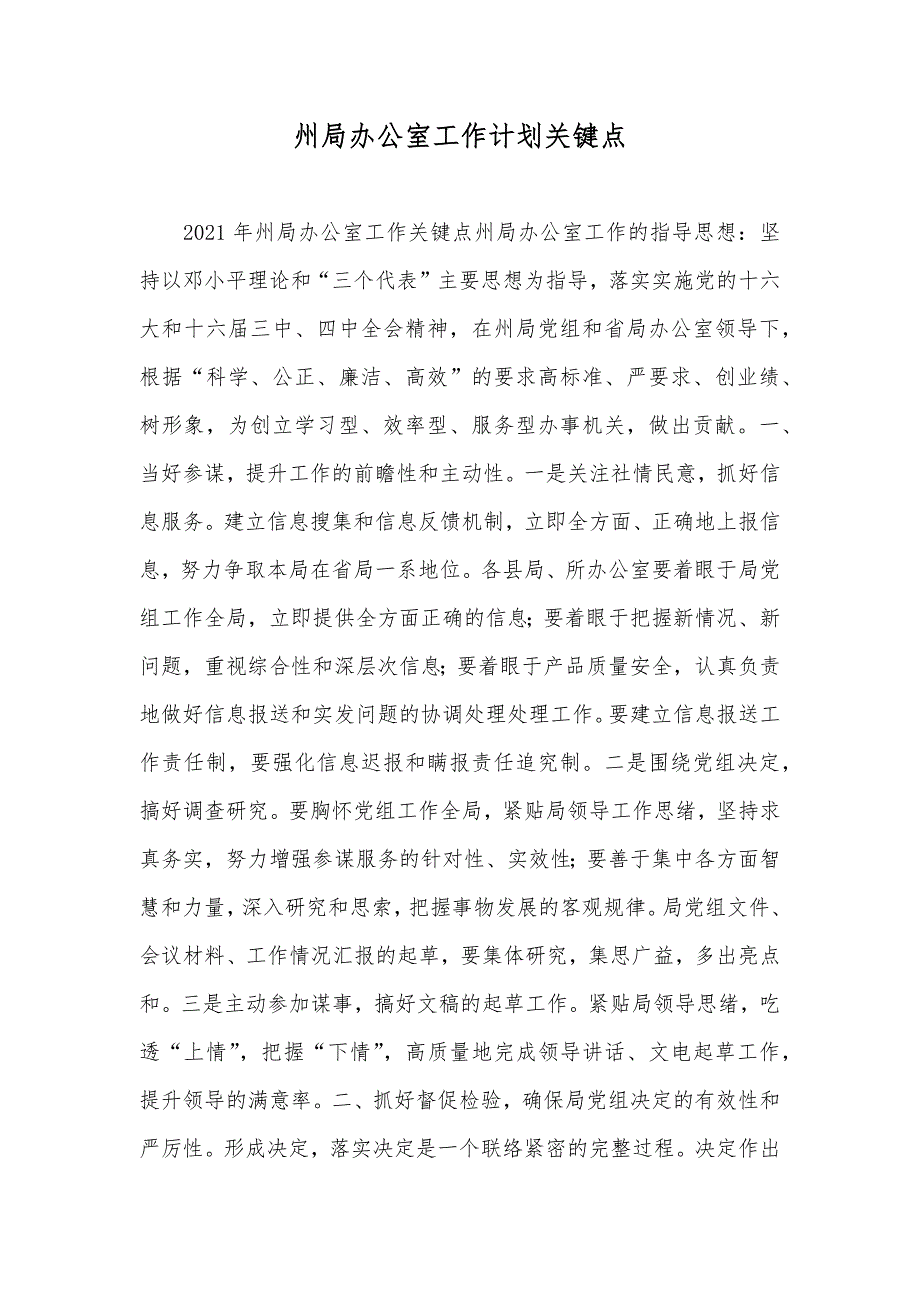 州局办公室工作计划关键点
2021 年州局办公室工作关键点州局办公室工作的指导思想：坚
持以邓小平理论和“三个代表”主要思想为指导，落实实施党的十六
大和十六届三中、四中全会精神，在州局党组和省局办公室领导下，
根据“科学、公正、廉洁、高效”的要求高标准、严要求、创业绩、
树形象，为创立学习型、效率型、服务型办事机关，做出贡献。一、
当好参谋，提升工作的前瞻性和主动性。一是关注社情民意，抓好信
息服务。建立信息搜集和信息反馈机制，立即全方面、正确地上报信
息，努力争取本局在省局一系地位。各县局、所办公室要着眼于局党
组工作全局，立即提供全方面正确的信息；要着眼于把握新情况、新
问题，重视综合性和深层次信息；要着眼于产品质量安全，认真负责
地做好信息报送和实发问题的协调处理处理工作。要建立信息报送工
作责任制，要强化信息迟报和瞒报责任追究制。二是围绕党组决定，
搞好调查研究。要胸怀党组工作全局，紧贴局领导工作思绪，坚持求
真务实，努力增强参谋服务的针对性、实效性；要善于集中各方面智
慧和力量，深入研究和思索，把握事物发展的客观规律。局党组文件、
会议材料、工作情况汇报的起草，要集体研究，集思广益，多出亮点
和。三是主动参加谋事，搞好文稿的起草工作。紧贴局领导思绪，吃
透“上情”，把握“下情”，高质量地完成领导讲话、文电起草工作，
提升领导的满意率。二、抓好督促检验，确保局党组决定的有效性和
严厉性。形成决定，落实决定是一个联络紧密的完整过程。决定作出